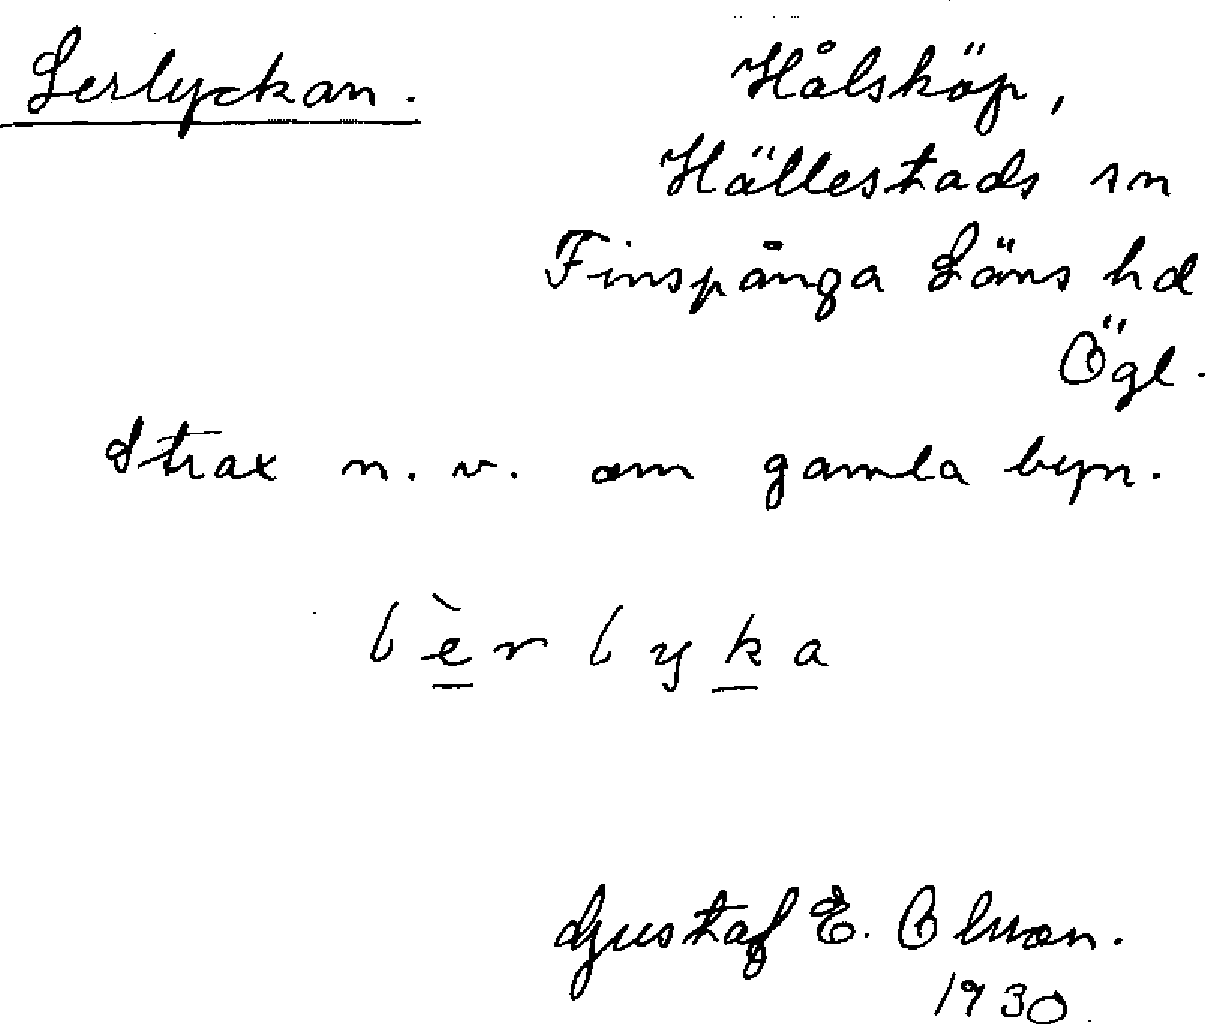 Lerlyckan.
Hålsköp,
Hällestads sn
Finspånga Läns hd
Ögl.
Strax n. v. om gamla byn.
lèrlyka
Gustaf E. Olsson.
1930